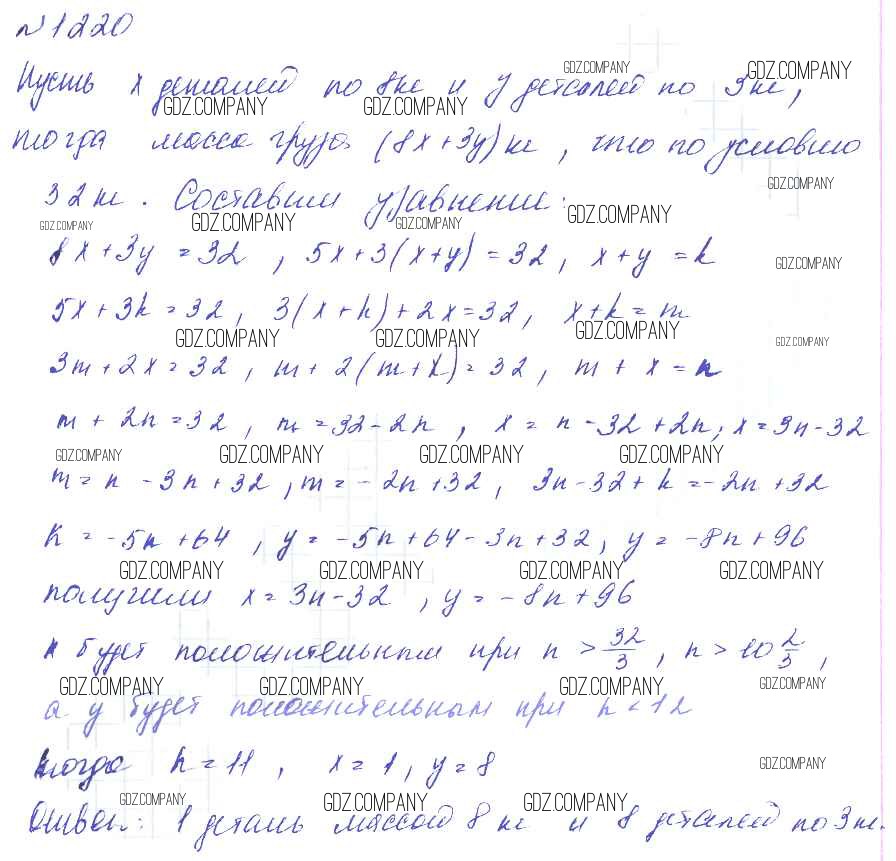 №1220
Пусть x деталей по 8кг и y деталей по 3кг,
тогда масса груза (8x+3y) кг, что по условию
32 кг. Составим уравнение:
8x+3y=32, 5x+3(x+y)=32, x+y=k
5x+3k=32, 3(x+k)+2x=32, x+k=m
3m+2x=32, m+2(m+x)=32, m+x=n
m+2n=32, m=32-2n, x=n-32+2n; x=3n-32
m=n-3n+32, m=-2n+32, 3n-32+k=-2n+32
k=-5n+64, y=-5n+64-3n+32, y=-8n+96
получили x=3n-32, y=-8n+96
x будет положительным при n>32/3, n>10 2/3,
а y будет положительным при n<12
тогда n=11, x=1, y=8
Ответ: 1 деталь массой 8 кг и 8 деталей по 3кг.
GDZ.COMPANY